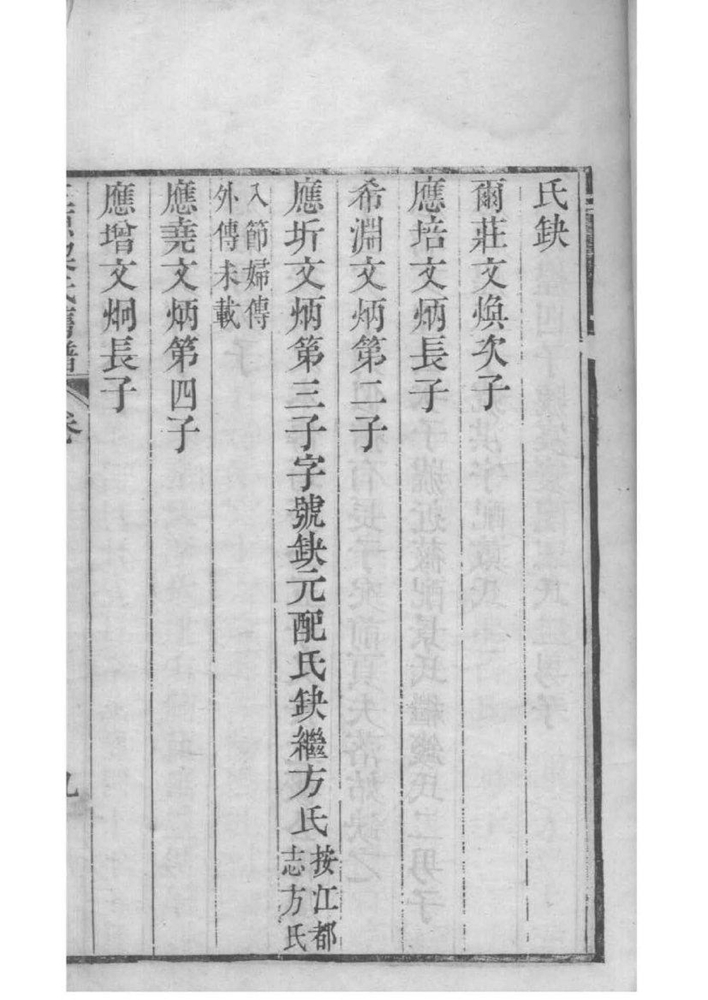 氏缺
爾莊文煥次子
應培文炳長子
希淵文炳第二子
應圻文炳第三子字號缺元配氏缺繼方氏按江都志方氏
入節婦傳外傳未載
應堯文炳第四子
應增文炯長子
氏舊譜 卷 九